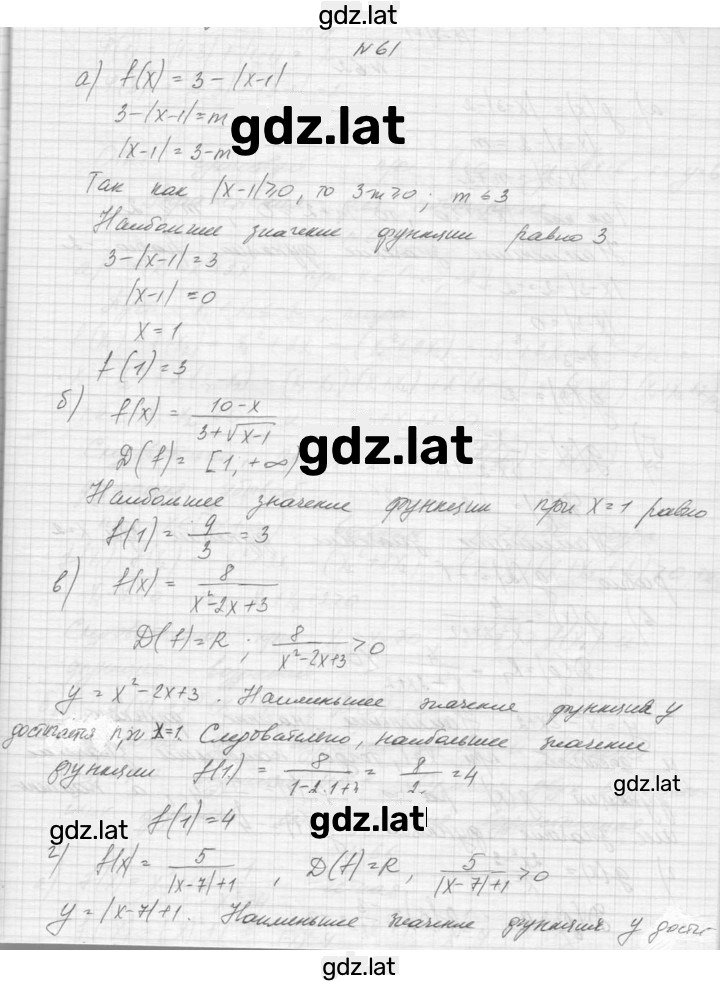 gdz.lat
№61
а) f(x) = 3 - |x-1|
3 - |x-1| = m
gdz.lat
|x-1| = 3-m
Так как |x-1|≥0, то 3-m≥0; m≤3
Наибольшее значение функции равно 3.
3 - |x-1| = 3
|x-1| = 0
x = 1
f(1) = 3
б) f(x) = (10-x)/(3+√(x-1))
gdz.lat
D(f) = [1, +∞)
Наибольшее значение функции при x=1 равно
f(1) = 9/3 = 3
в) f(x) = 8/(x²-2x+3)
D(f) = R; 8/(x²-2x+3) > 0
y = x²-2x+3. Наименьшее значение функции y
достигается при x=1. Следовательно, наибольшее значение
функции f(1) = 8/(1-2·1+3) = 8/2 = 4
gdz.lat
f(1) = 4
gdz.lat
gdz.lat
г) f(x) = 5/(|x-7|+1), D(f) = R, 5/(|x-7|+1) > 0
y = |x-7|+1. Наименьшее значение функции y дости-
gdz.lat